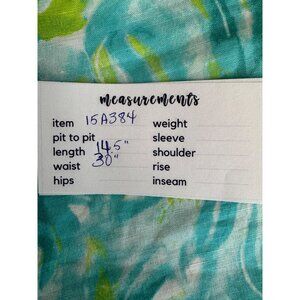 measurements
item 15A384 weight
pit to pit sleeve
length 14.5" shoulder
waist 30" rise
hips inseam